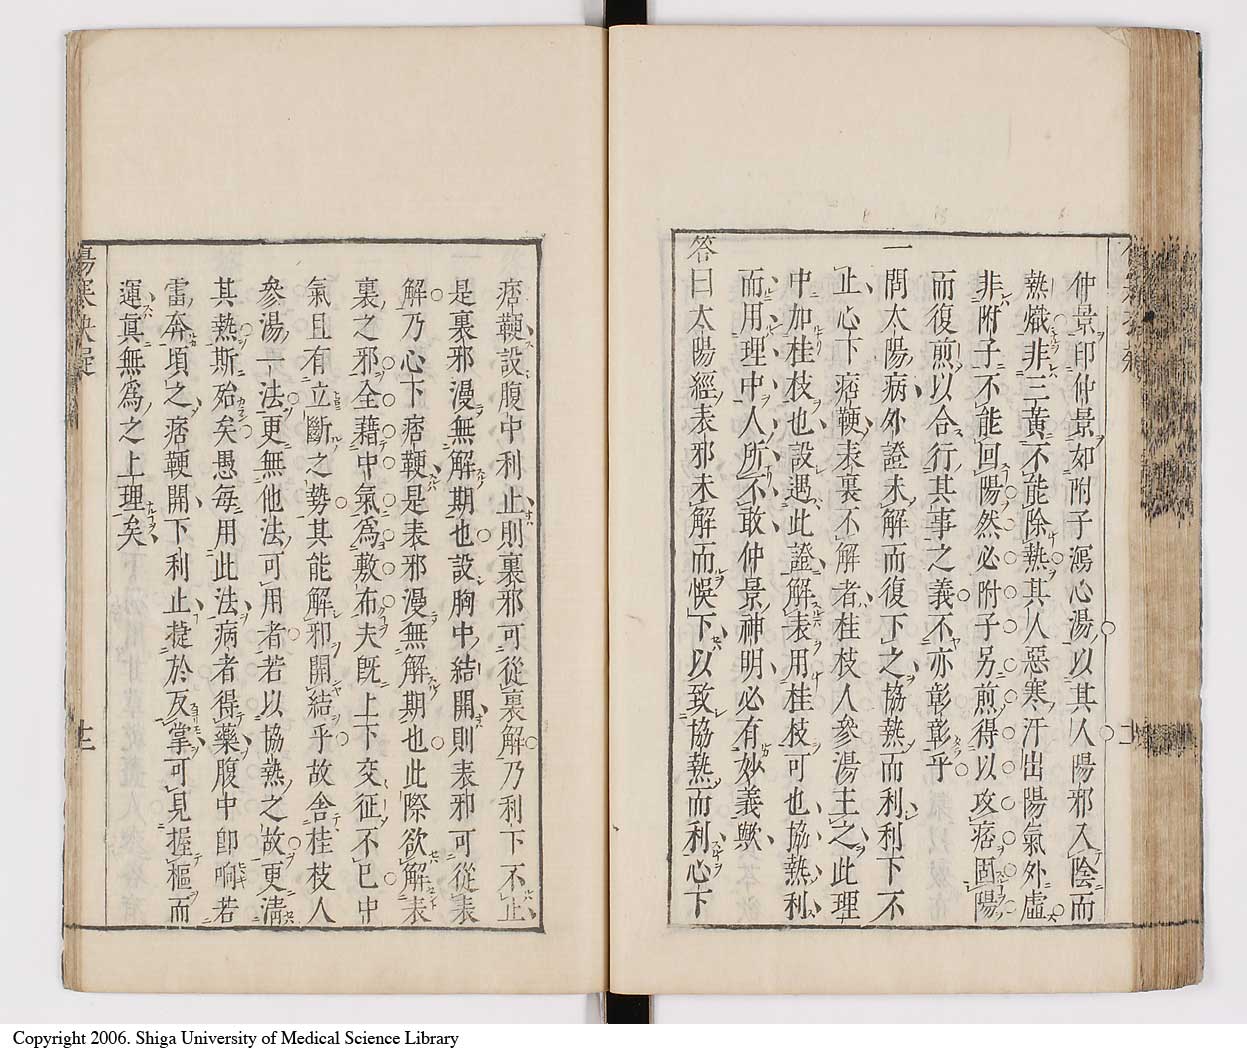 仲景印仲景如附子瀉心湯以其人陽邪入陰而
熱熾非三黃不能除熱其人惡寒汗出陽氣外虛
非附子不能回陽然必附子另煎得以攻痞固陽
而復煎以合行其事之義不亦彰彰乎
一問太陽病外證未解而復下之協熱而利利下不
止心下痞鞕表裏不解者桂枝人參湯主之此理
中加桂枝也設遇此證解表用桂枝可也協熱利
而用理中人所不敢仲景神明必有妙義歟
答曰太陽經表邪未解而悞下以致協熱而利心下
痞鞕設腹中利止則裏邪可從裏解乃利下不止
是裏邪漫無解期也設胸中結開則表邪可從表
解乃心下痞鞕是表邪漫無解期也此際欲解表
裏之邪全藉中氣爲敷布夫既上下交征不已中
氣且有立斷之勢其能解邪開結乎故舍桂枝人
參湯一法更無他法可用者若以協熱之故更清
其熱斯殆矣愚每用此法病者得藥腹中卽响若
雷奔頃之痞鞕開下利止捷於反掌可見握樞而
運眞無爲之上理矣
Copyright 2006. Shiga University of Medical Science Library